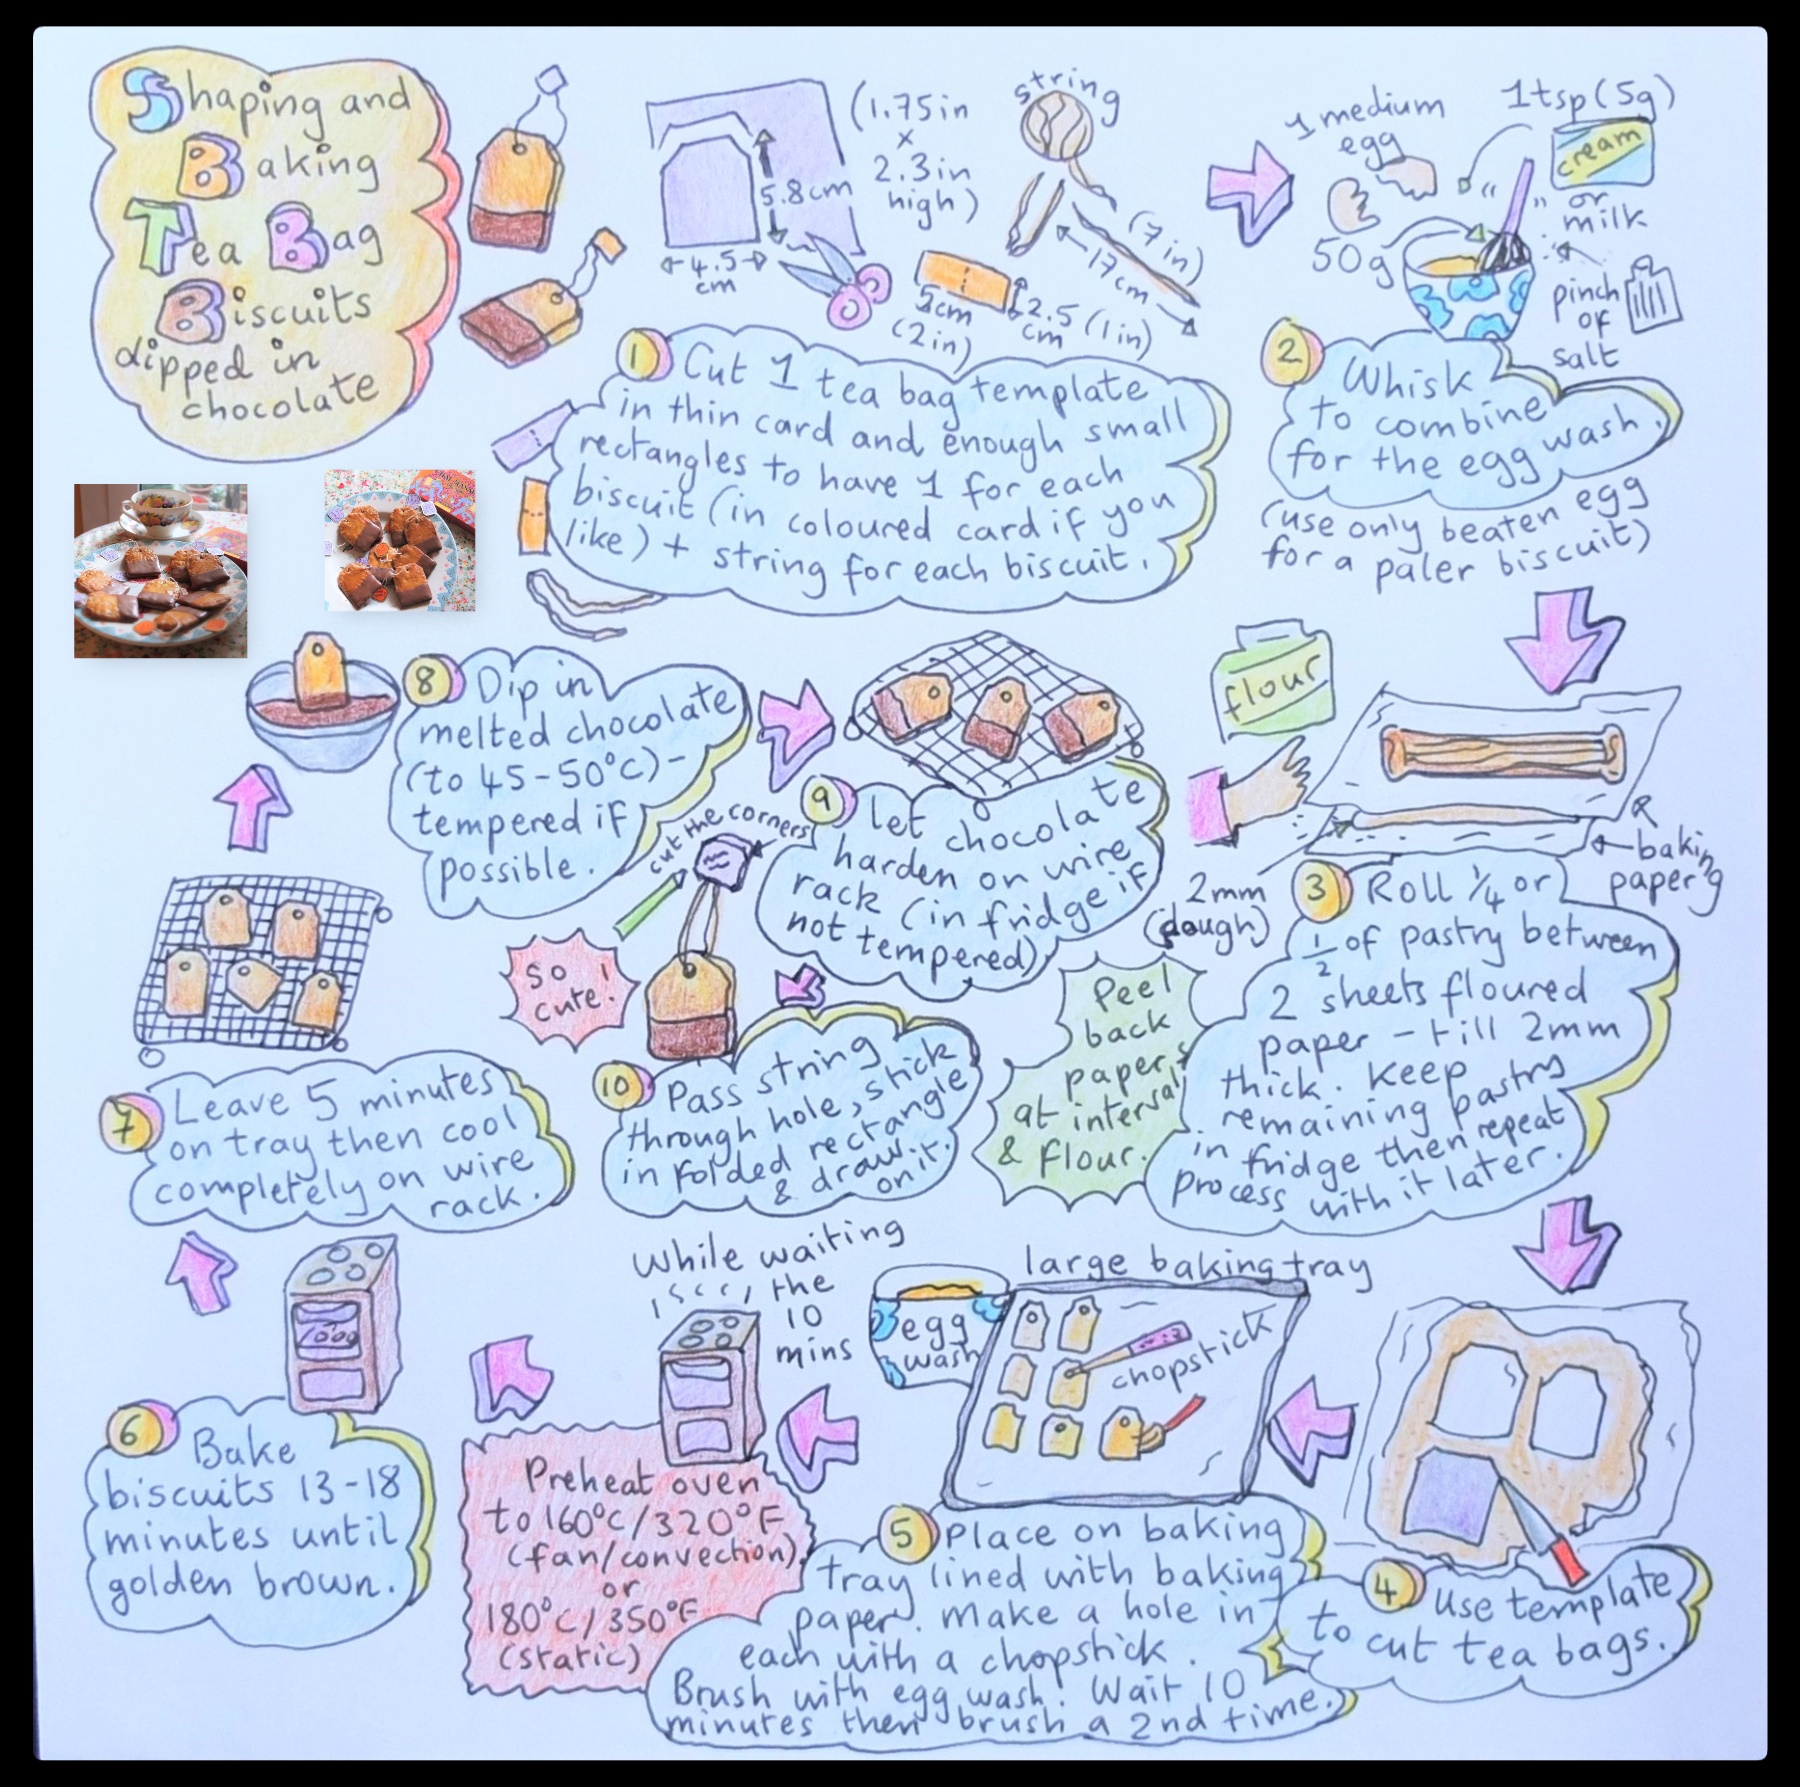 Shaping and
Baking
Tea Bag
Biscuits
dipped in
chocolate
5.8cm
4.5
cm
(1.75in
x
2.3in
high)
string
17cm
(7in)
5cm
(2in)
2.5
cm
(1in)
1 Cut 1 tea bag template
in thin card and enough small
rectangles to have 1 for each
biscuit (in coloured card if you
like) + string for each biscuit.
1 medium
egg
50g
1tsp (5g)
cream
or
milk
pinch
of
salt
2 Whisk
to combine
for the egg wash.
(use only beaten egg
for a paler biscuit)
flour
baking
paper
2mm
(dough)
3 Roll 1/4 or
1/2 of pastry between
2 sheets floured
paper - till 2mm
thick. Keep
remaining pastry
in fridge then repeat
process with it later.
Peel
back
papers
at intervals
& flour.
4 Use template
to cut tea bags.
large baking tray
egg
wash
chopstick
5 Place on baking
tray lined with baking
paper. Make a hole in
each with a chopstick.
Brush with egg wash! Wait 10
minutes then brush a 2nd time.
While waiting
the
10
mins
Preheat oven
to 160°C/320°F
(fan/convection)
or
180°C/350°F
(static)
6 Bake
biscuits 13-18
minutes until
golden brown.
7 Leave 5 minutes
on tray then cool
completely on wire
rack.
8 Dip in
melted chocolate
(to 45-50°C) -
tempered if
possible.
9 Let chocolate
harden on wire
rack (in fridge if
not tempered)
cut the corners
So
cute!
10 Pass string
through hole, stick
in folded rectangle
& draw
on it.